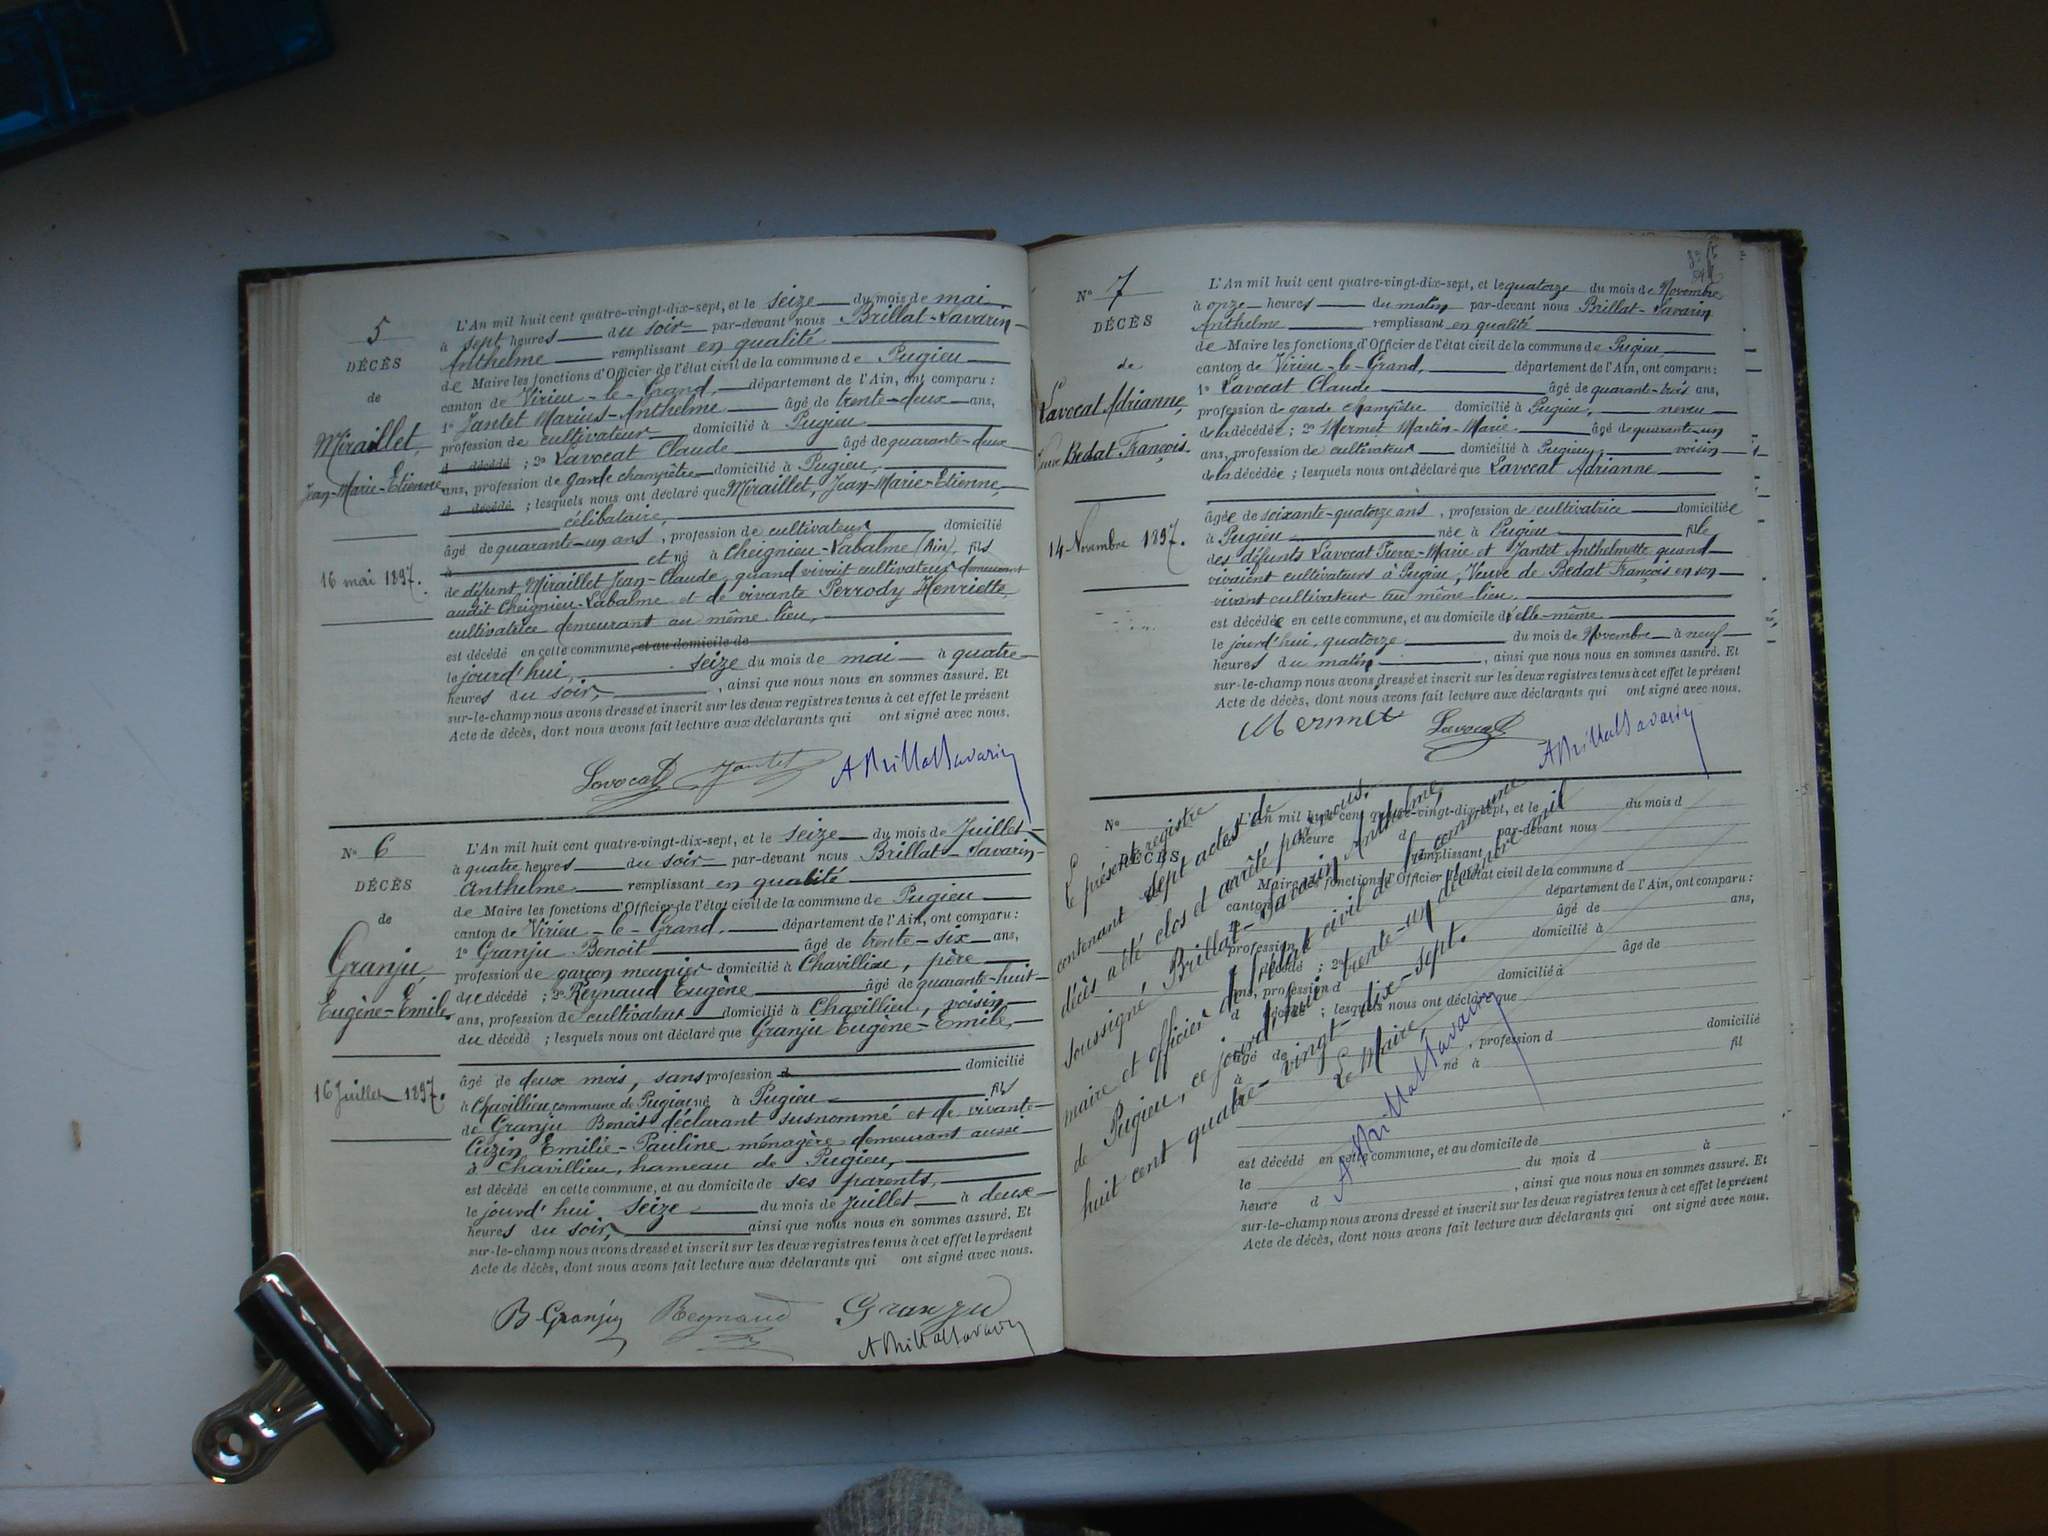 5
DÉCÈS
de
Miraillet,
Jean-Marie-Etienne
16 mai 1897.
L'An mil huit cent quatre-vingt-dix-sept, et le seize du mois de mai
à sept heures du soir par-devant nous Brillat-Savarin
Anthelme remplissant en qualité
de Maire les fonctions d'Officier de l'état civil de la commune de Pugieu
canton de Virieu-le-Grand, département de l'Ain, ont comparu :
1º Jantet Marius-Anthelme âgé de trente-deux ans,
profession de cultivateur domicilié à Pugieu
d décédé ; 2º Lavocat Claude âgé de quarante-deux
ans, profession de garde champêtre domicilié à Pugieu,
d décédé ; lesquels nous ont déclaré que Miraillet, Jean-Marie-Etienne,
célibataire,
âgé de quarante-un ans, profession de cultivateur domicilié
à et né à Cheignieu-Labalme (Ain), fils
de défunt Miraillet Jean-Claude, quand vivait cultivateur demeurant
audit Cheignieu-Labalme et de vivante Perrody Henriette
cultivatrice demeurant au même lieu,
est décédé en cette commune, et au domicile de
le jourd'hui, seize du mois de mai à quatre
heures du soir, , ainsi que nous nous en sommes assuré. Et
sur-le-champ nous avons dressé et inscrit sur les deux registres tenus à cet effet le présent
Acte de décès, dont nous avons fait lecture aux déclarants qui ont signé avec nous.
Lavocat Jantet ABrillatSavarin
Nº 6
DÉCÈS
de
Granju,
Eugène-Emile
16 Juillet 1897.
L'An mil huit cent quatre-vingt-dix-sept, et le seize du mois de Juillet
à quatre heures du soir par-devant nous Brillat-Savarin
Anthelme remplissant en qualité
de Maire les fonctions d'Officier de l'état civil de la commune de Pugieu
canton de Virieu-le-Grand. département de l'Ain, ont comparu :
1º Granju Benoit âgé de trente-six ans,
profession de garçon meunier domicilié à Chavillieu, père
du décédé ; 2º Reynaud Eugène âgé de quarante-huit
ans, profession de cultivateur domicilié à Chavillieu, voisin
du décédé ; lesquels nous ont déclaré que Granju Eugène-Emile,
âgé de deux mois, sans profession d domicilié
à Chavillieu commune de Pugieu né à Pugieu fils
de Granju Benoit déclarant susnommé et de vivante
Cuzin Emilie-Pauline ménagère demeurant aussi
à Chavillieu, hameau de Pugieu,
est décédé en cette commune, et au domicile de ses parents,
le jourd'hui seize du mois de Juillet à deux
heures du soir, ainsi que nous nous en sommes assuré. Et
sur-le-champ nous avons dressé et inscrit sur les deux registres tenus à cet effet le présent
Acte de décès, dont nous avons fait lecture aux déclarants qui ont signé avec nous.
B Granju Reynaud Granju
ABrillatSavarin
Nº 7
DÉCÈS
de
Lavocat Adrianne,
Veuve Bedat François.
14 Novembre 1897.
L'An mil huit cent quatre-vingt-dix-sept, et le quatorze du mois de Novembre
à onze heures du matin par-devant nous Brillat-Savarin
Anthelme remplissant en qualité
de Maire les fonctions d'Officier de l'état civil de la commune de Pugieu
canton de Virieu-le-Grand, département de l'Ain, ont comparu :
1º Lavocat Claude âgé de quarante-trois ans,
profession de garde champêtre domicilié à Pugieu, neveu
de la décédée ; 2º Mermet Martin-Marie âgé de quarante-un
ans, profession de cultivateur domicilié à Pugieu, voisin
de la décédée ; lesquels nous ont déclaré que Lavocat Adrianne
âgée de soixante-quatorze ans, profession de cultivatrice domiciliée
à Pugieu née à Pugieu fille
des défunts Lavocat Pierre-Marie et Jantet Anthelmette quand
vivaient cultivateurs à Pugieu, Veuve de Bedat François en son
vivant cultivateur au même lieu.
est décédée en cette commune, et au domicile d'elle-même
le jourd'hui, quatorze du mois de Novembre à neuf
heures du matin , ainsi que nous nous en sommes assuré. Et
sur-le-champ nous avons dressé et inscrit sur les deux registres tenus à cet effet le présent
Acte de décès, dont nous avons fait lecture aux déclarants qui ont signé avec nous.
Mermet Lavocat ABrillatSavarin
Nº
DÉCÈS
L'An mil huit cent quatre-vingt-dix-sept, et le du mois d
heure d par-devant nous
remplissant
Maire les fonctions d'Officier de l'état civil de la commune d
canton département de l'Ain, ont comparu :
âgé de ans,
profession d domicilié à
décédé ; 2º âgé de
ans, profession d domicilié à
d décédé ; lesquels nous ont déclaré que
âgé de , profession d domicilié
à né à fil
est décédé en cette commune, et au domicile de
le du mois d à
heure d , ainsi que nous nous en sommes assuré. Et
sur-le-champ nous avons dressé et inscrit sur les deux registres tenus à cet effet le présent
Acte de décès, dont nous avons fait lecture aux déclarants qui ont signé avec nous.
Le présent registre
contenant sept actes de
décès a été clos et arrêté par nous
soussigné Brillat-Savarin Anthelme,
maire et officier de l'état civil de la commune
de Pugieu, ce jourd'hui trente-un décembre mil
huit cent quatre-vingt-dix-sept.
Le Maire,
ABrillatSavarin